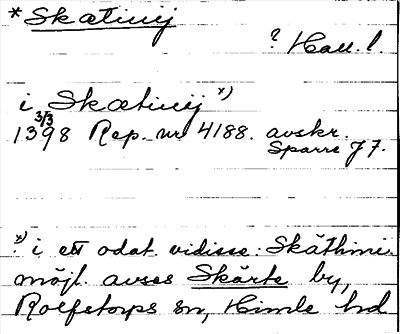 * Skætinij
? Hall. l.
i Skætinij x)
3/3
1398 Rep. nr 4188. avskr.
Sparre J 7.
x) i ett odat. vidisse: Skäthinie
möjl. avses Skärte by,
Rolfstorps sn, Himle hd